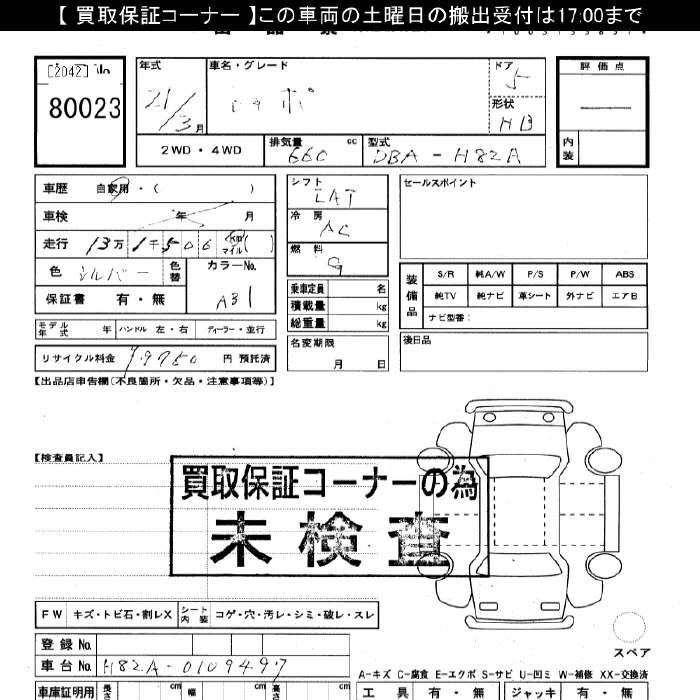 【 買取保証コーナー 】この車両の土曜日の搬出受付は17:00まで
[2042] No
80023
年式 21/3月
車名・グレード
ドア 5
形状 HB
評価点
内装
2WD・4WD
排気量 660 cc
型式 DBA-H82A
車歴 自家用・( )
車検 年 月
走行 13万 1千506 km マイル( )
色 シルバー 色替
カラーNo. A31
保証書 有・無
シフト LAT
冷房 AC
燃料 G
乗車定員 名
積載量 kg
総重量 kg
セールスポイント
装備品
S/R 純A/W P/S P/W ABS
純TV 純ナビ 革シート 外ナビ エアB
ナビ型番:
モデル年式 年 ハンドル 左・右 ディーラー・並行
リサイクル料金 円 預託済
名変期限 月 日
後日品
【出品店申告欄(不良箇所・欠品・注意事項等)】
【検査員記入】
買取保証コーナーの為
未検査
FW キズ・トビ石・割レX シート内装 コゲ・穴・汚レ・シミ・破レ・スレ
スペア
登録 No.
車台 No. H82A-0109497
A-キズ C-腐食 E-エクボ S-サビ U-凹ミ W-補修 XX-交換済
車庫証明用 長さ cm 幅 cm 高さ cm
工具 有・無 ジャッキ 有・無